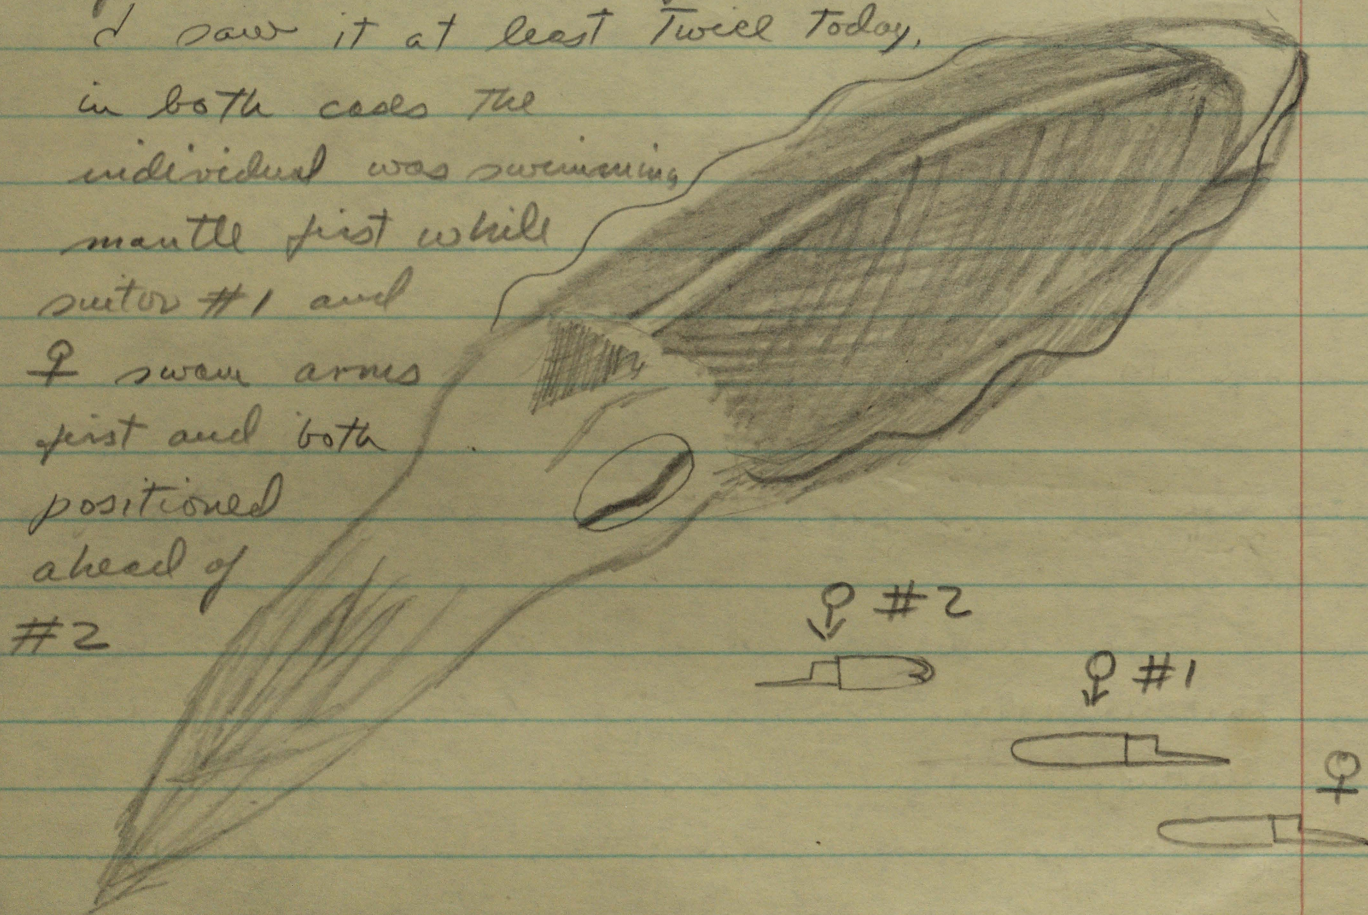 I saw it at least Twice Today,
in both cases the
individual was swimming
mantle first while
suitor #1 and
♀ swam arms
first and both
positioned
ahead of
#2
♂ #2
♂ #1
♀